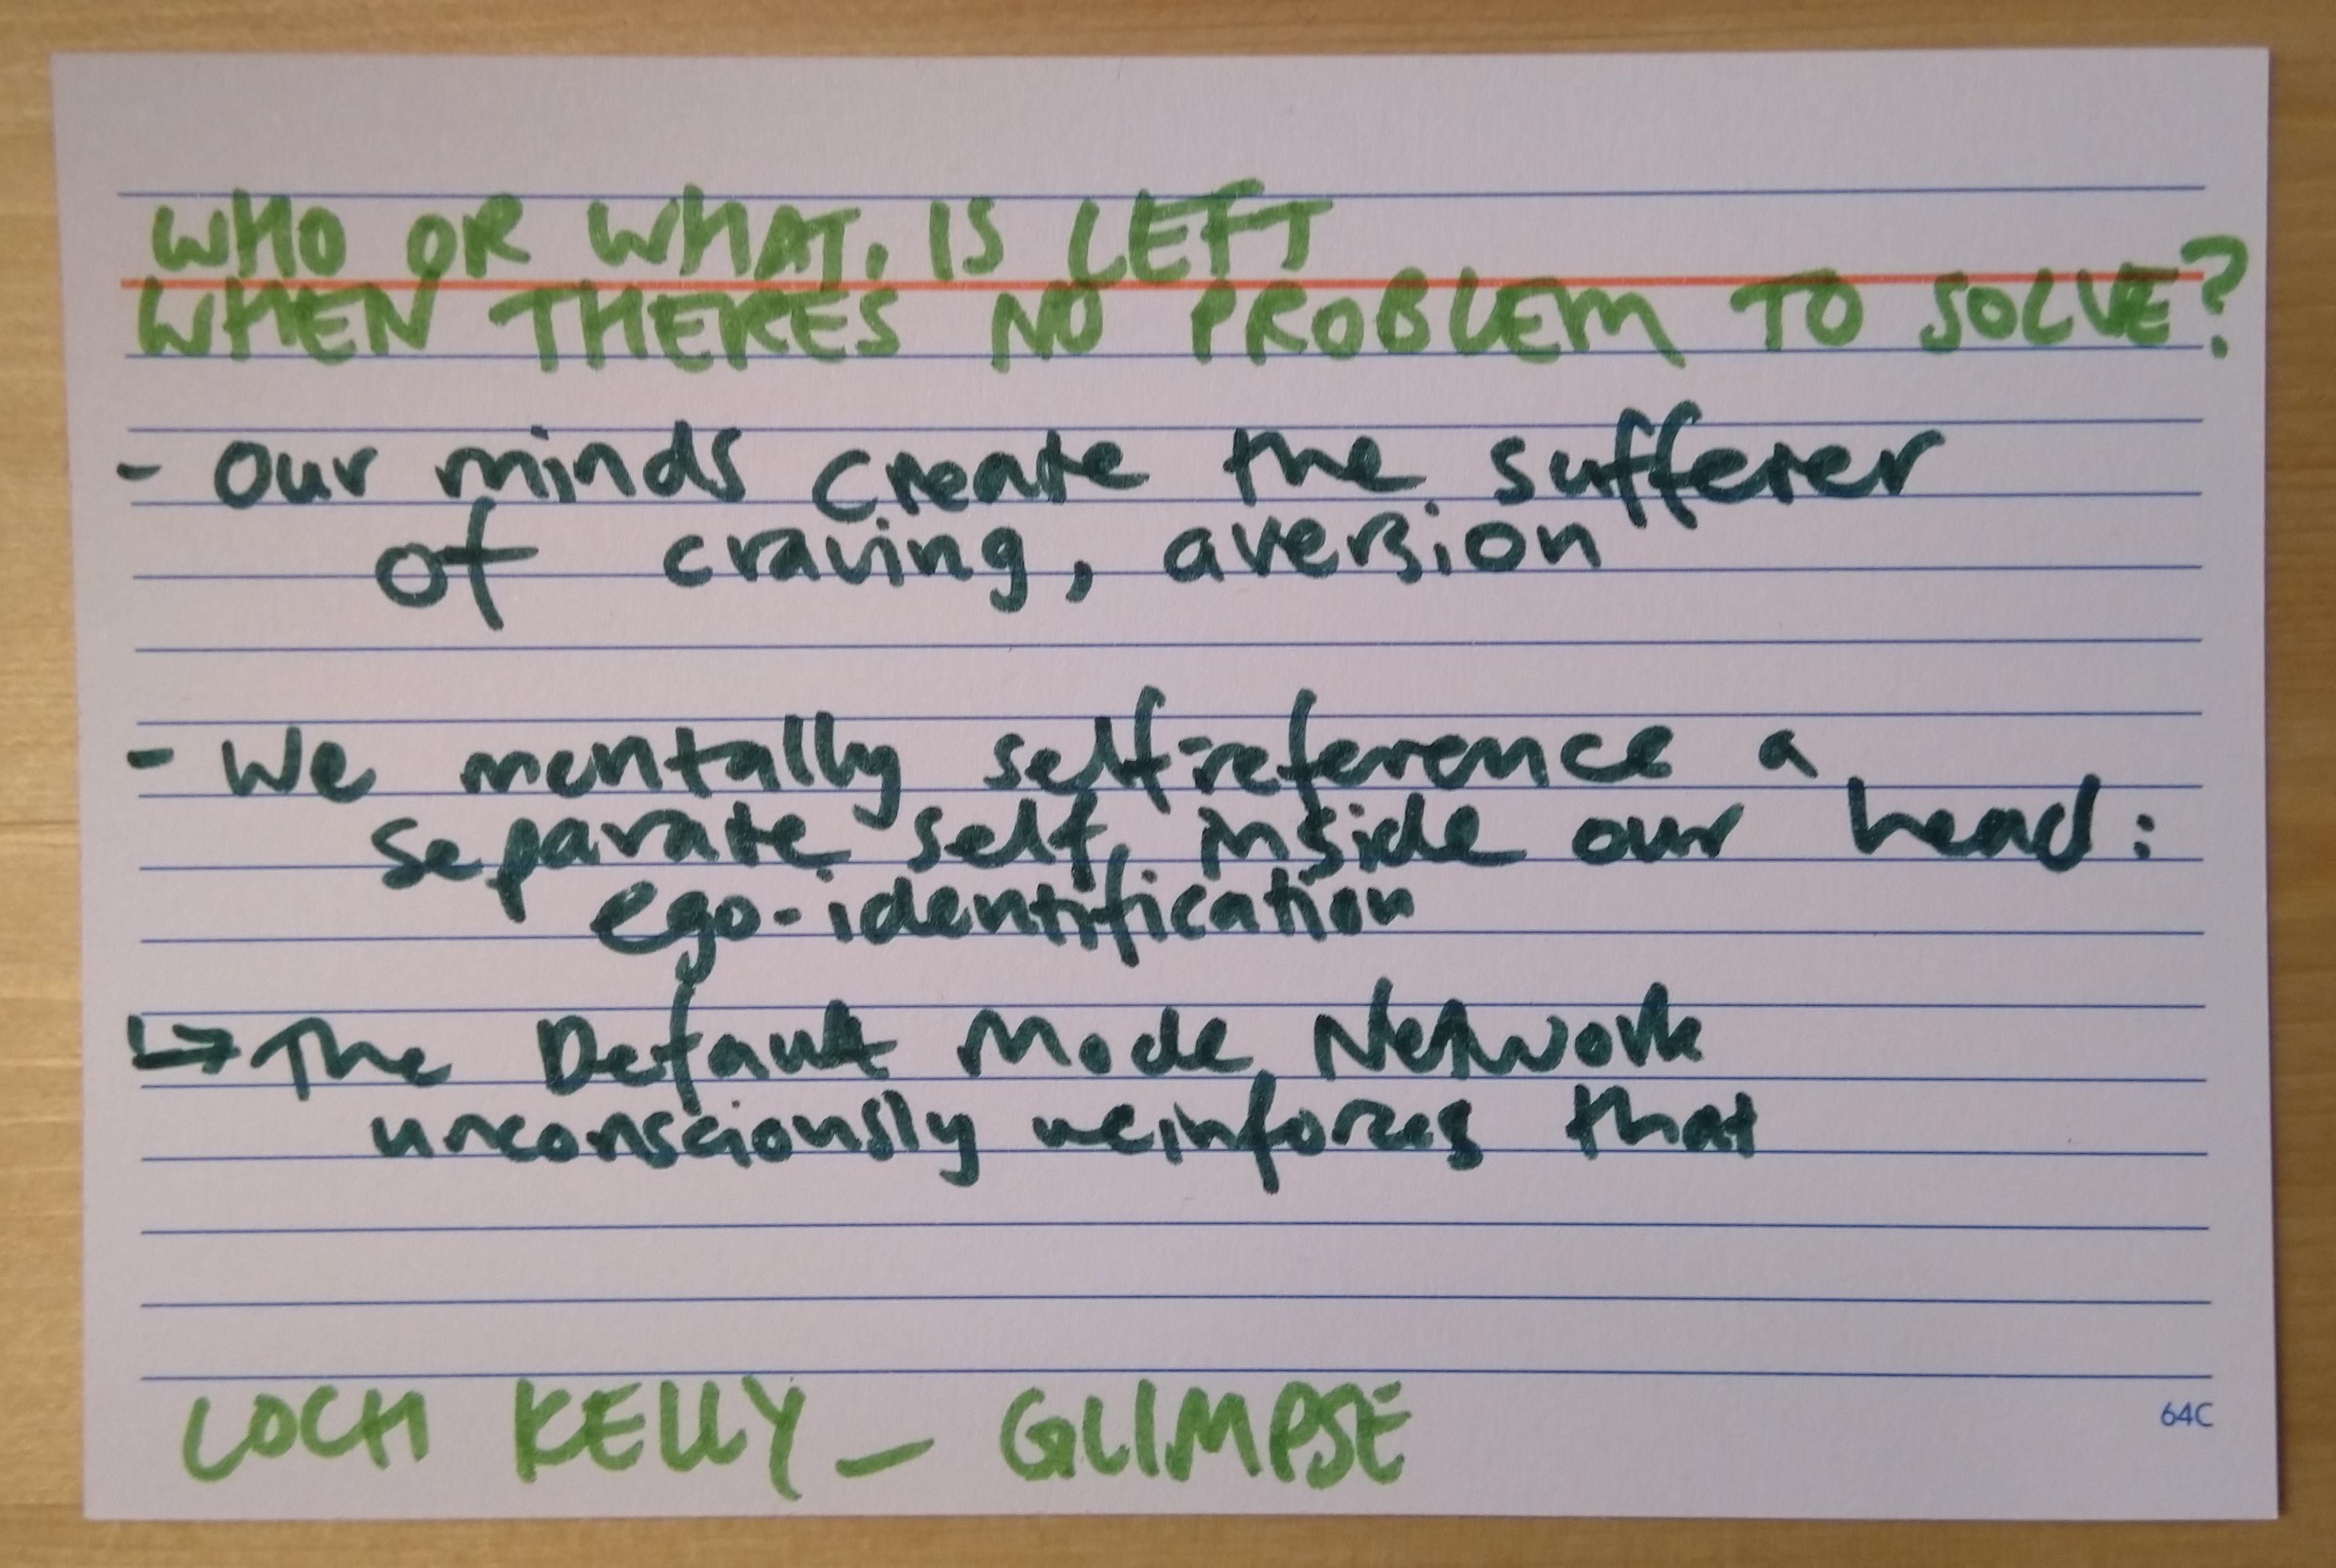 WHO OR WHAT, IS LEFT
WHEN THERE'S NO PROBLEM TO SOLVE?
- Our minds create the sufferer
of craving, aversion
- We mentally self-reference a
separate self, inside our head:
ego-identification
↳ The Default Mode Network
unconsciously reinforces that
LOCH KELLY - GLIMPSE
64C